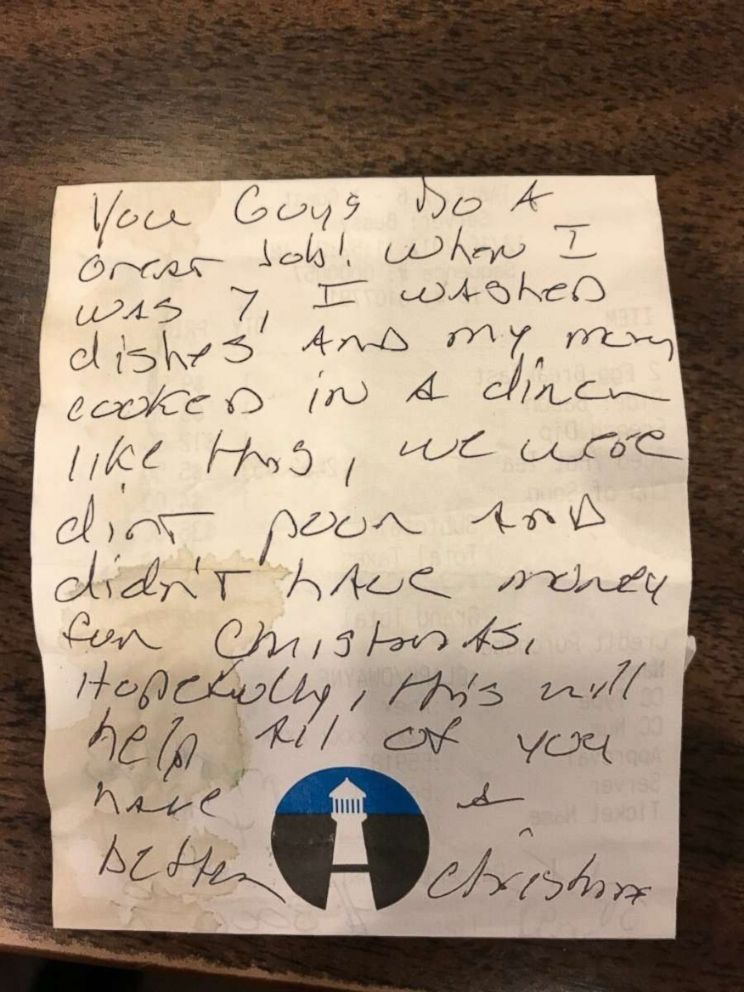 You Guys Do A
Great Job! When I
was 7, I washed
dishes and my mom
cooked in a diner
like this, we were
dirt poor and
didn't have money
for Christmas.
Hopefully, this will
help all of you
have a
better Christmas